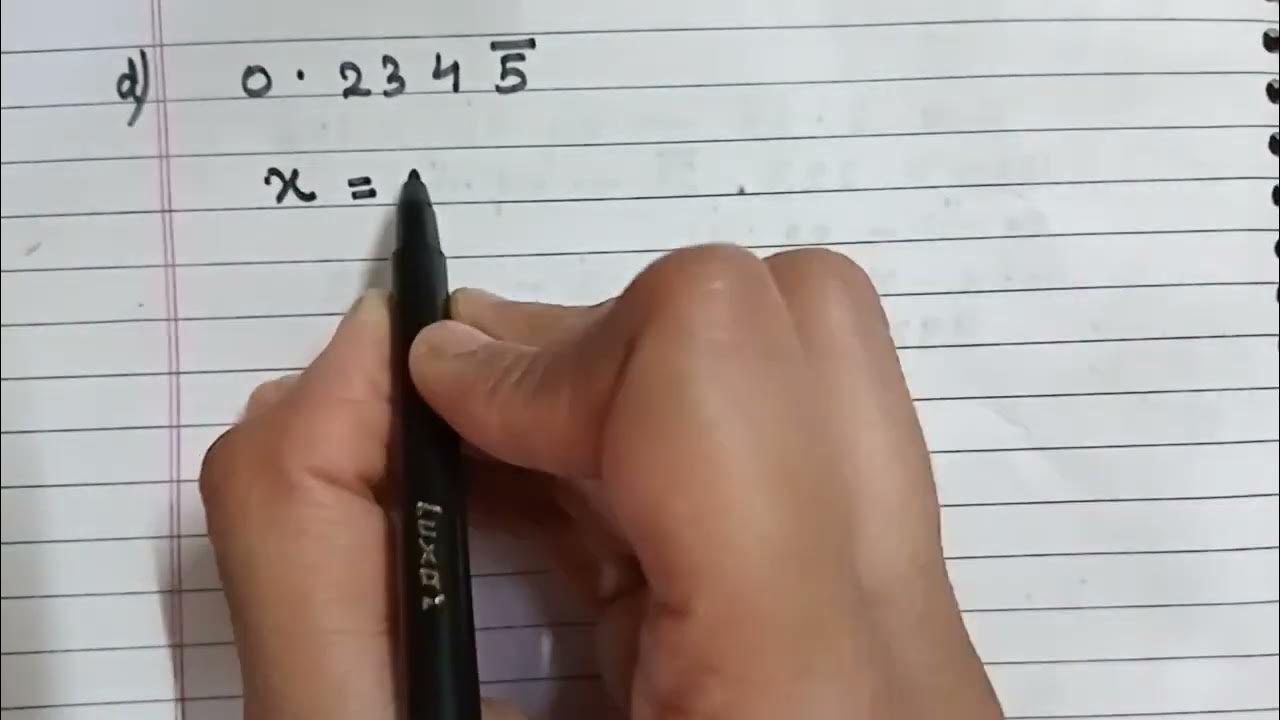 d) 0.2345̅
x =
Luxor